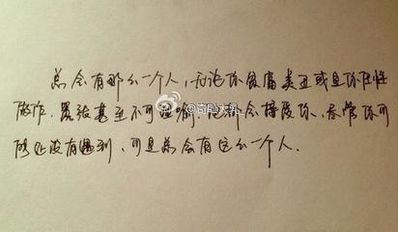 总会有那么一个人,无论你贫富美丑或是你任性
做作.嚣张甚至不可理喻.他都会接受你.尽管你可
能还没有遇到,可是总会有这么一个人.